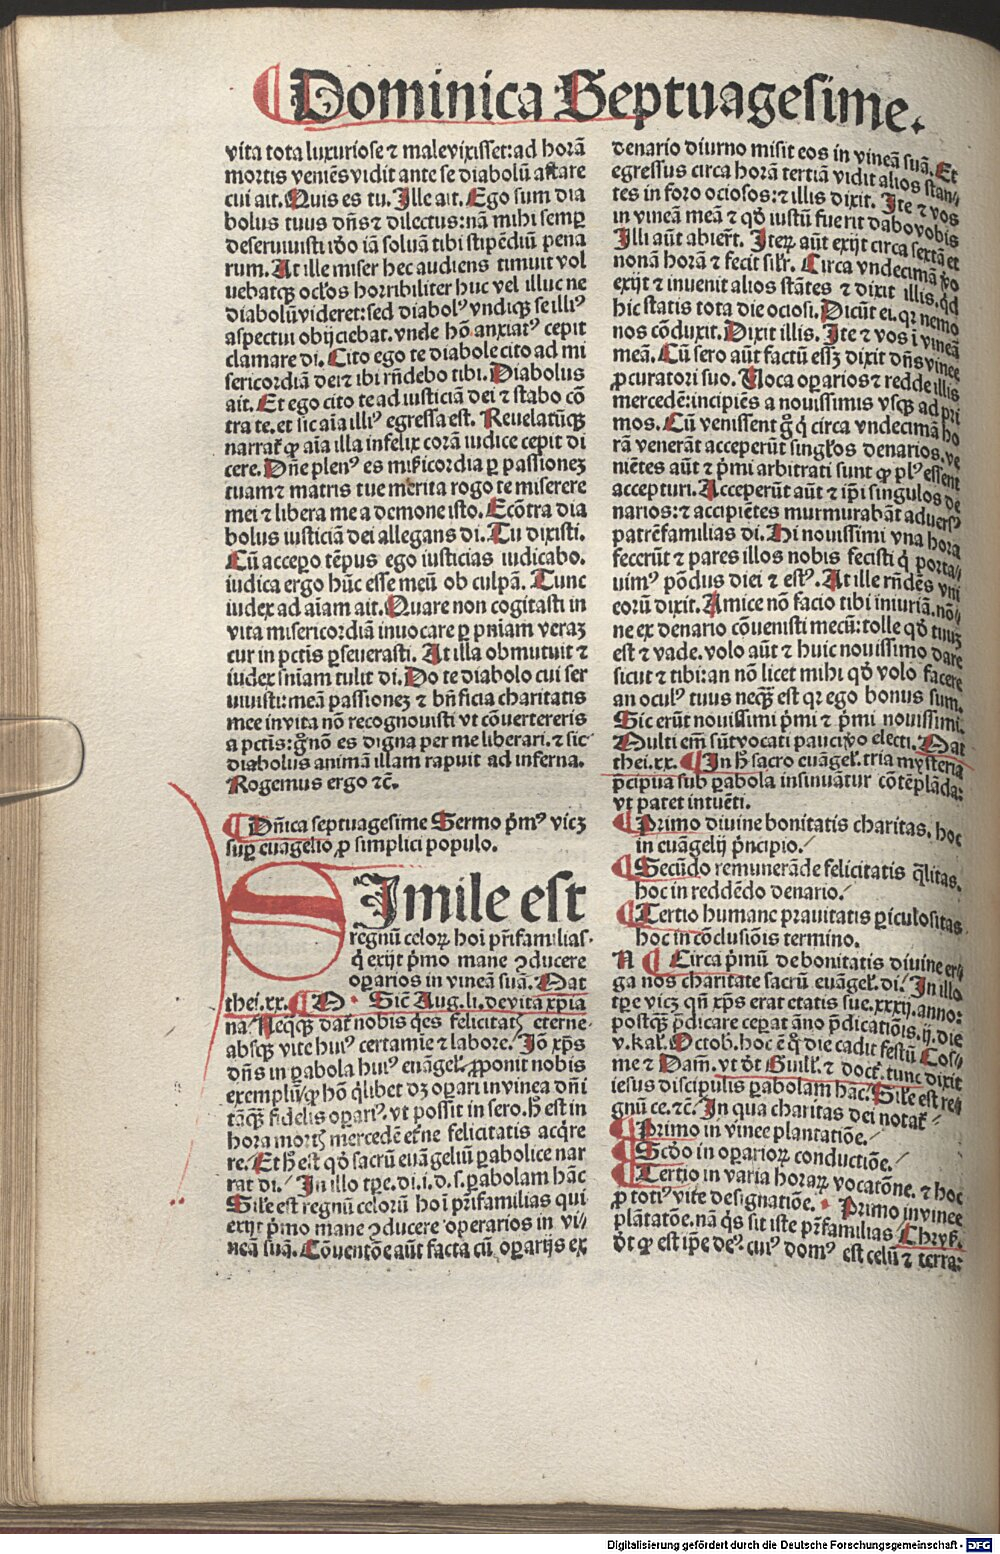 Dominica Septuagesime.
vita tota luxuriose ⁊ male vixisset: ad horā
mortis veniēs vidit ante se diabolū astare
cui ait. Quis es tu. Ille ait. Ego sum dia
bolus tuus dn̄s ⁊ dilectus: nā mihi semꝑ
deseruiuisti iđo iā soluā tibi stipēdiū pena
rum. At ille miser hec audiens timuit vol
uebatqꝫ oc̄los horribiliter huc vel illuc ne
diabolū videret: sed diabolꝰ vndiqꝫ se illiꝰ
aspectui obijciebat. vnde hō anxiatꝰ cepit
clamare di. Cito ego te diabole cito ad mi
sericordiā dei ⁊ ibi rn̄debo tibi. Diabolus
ait. Et ego cito te ad iusticiā dei ⁊ stabo cō
tra te. et sic aīa illiꝰ egressa est. Reuelatūqꝫ
narrat̄ ꝙ aīa illa infelix corā iudice cepit di
cere. Dn̄e plenꝰ es mīcordia ꝑ passionez
tuam ⁊ matris tue merita rogo te miserere
mei ⁊ libera me a demone isto. Ecōtra dia
bolus iusticiā dei allegans di. Tu dixisti.
Cū accepo tēpus ego iusticias iudicabo.
iudica ergo hūc esse meū ob culpā. Tunc
iudex ad aīam ait. Quare non cogitasti in
vita misericordiā inuocare ꝑ pn̄iam veraz
cur in pctīs ꝑseuerasti. At illa obmutuit ⁊
iudex sn̄iam tulit di. Do te diabolo cui ser
uiuisti: meā passionez ⁊ bn̄ficia charitatis
mee in vita nō recognouisti vt cōuertereris
a pctīs: g̊ nō es digna per me liberari. ⁊ sic
diabolus animā illam rapuit ad inferna.
Rogemus ergo ⁊c̄.
¶ Dn̄ica septuagesime Sermo p̄mꝰ vicꝫ
suꝑ euāgelio ꝓ simplici populo.
SImile est
regnū celoꝝ hoī pr̄ifamilias.
q̇ exijt p̄mo mane ꝯducere
oꝑarios in vineā suā. Mat
thei. xx. ¶ M. Sic̄ Aug. li. de vita xp̄ia
na. Neqꝫ dat̄ nobis q̄es felicitatꝭ eterne.
absqꝫ vite huiꝰ certamīe ⁊ labore. Iō xp̄s
dn̄s in ꝑabola huiꝰ euāgel̄. ꝓponit nobis
exemplū/ ꝙ hō q̄libet dꝫ oꝑari in vinea dn̄i
tāqꝫ fidelis oꝑariꝰ. vt possit in sero. h̄ est in
hora mortꝭ mercedē et̄ne felicitatis acq̄re
re. Et h̄ est qđ sacrū euāgeliū ꝑabolice nar
rat di. In illo tꝑe. di. i. d. s. ꝑabolam hāc
Sil̄e est regnū celorū hoī pr̄ifamilias qui
exijt p̄mo mane ꝯducere operarios in vi//
neā suā. Cōuentōe aūt facta cū oꝑarijs ex
denario diurno misit eos in vineā suā. Et
egressus circa horā tertiā vidit alios stan//
tes in foro ociosos: ⁊ illis dixit. Ite ⁊ vos
in vineā meā ⁊ qđ iustū fuerit dabo vobis
Illi aūt abierūt. Iteꝝ aūt exijt circa sextā et
nonā horā ⁊ fecit sil̄r. Circa vndecimā ṽo
exijt ⁊ inuenit alios stātes ⁊ dixit illis. qd̄
hic statis tota die ociosi. Dicūt ei. qꝛ nemo
nos cōduxit. Dixit illis. Ite ⁊ vos ī vineā
meā. Cū sero aūt factū essꝫ dixit dn̄s vinee
ꝓcuratori suo. Uoca oꝑarios ⁊ redde illis
mercedē: incipiēs a nouissimis vsqꝫ ad pri
mos. Cū venissent g̊ q̇ circa vndecimā ho
rā venerāt acceperūt singl̄os denarios. ve
niētes aūt ⁊ p̄mi arbitrati sunt ꝙ plꝰ essent
accepturi. Acceperūt aūt ⁊ ip̄i singulos de
narios: ⁊ accipiētes murmurabāt aduersꝰ
patrēfamilias di. Hi nouissimi vna hora
fecerūt ⁊ pares illos nobis fecisti q̇ porta//
uimꝰ pōdus diei ⁊ estꝰ. At ille rn̄dēs vni
eorū dixit. Amice nō facio tibi iniuriā. nō//
ne ex denario cōuenisti mecū: tolle qđ tuuꝫ
est ⁊ vade. volo aūt ⁊ huic nouissimo dare
sicut ⁊ tibi: an nō licet mihi qđ volo facere
an oculꝰ tuus neqꝫ est qꝛ ego bonus sum.
Sic erūt nouissimi p̄mi ⁊ p̄mi nouissimi.
Multi em̄ sūt vocati pauci ṽo electi. Mat
thei. xx. ¶ In h̄ sacro euāgel̄. tria mysteria
p̄cipua sub ꝑabola insinuātur cōtēplāda:
vt patet intuēti.
¶ Primo diuine bonitatis charitas. hoc
in euāgelij p̄ncipio.
¶ Secūdo remunerāde felicitatis q̄litas.
hoc in reddēdo denario.
¶ Tertio humane prauitatis ꝑiculositas
hoc in cōclusiōis termino.
N ¶ Circa p̄mū de bonitatis diuine er//
ga nos charitate sacrū euāgel̄. di. In illo
tꝑe vicꝫ qn̄ xp̄s erat etatis sue. xxxij. anno:
postqꝫ p̄dicare ceperat āno p̄dicatiōis. ij. die
v. kal̄. Octob. hoc ē q̇ die cadit festū Cos//
me ⁊ Dam̄. vt dt̄ Guill̄. ⁊ doct̄. tunc dixit
iesus discipulis ꝑabolam hac. Sil̄e est re//
gnū ce. ⁊c̄. In qua charitas dei notat̄
¶ Primo in vinee plantatiōe.
¶ Scđo in operarioꝝ conductiōe.
¶ Tertio in varia horaꝝ vocatōne. ⁊ hoc
ꝓ totiꝰ vite designatiōe. Primo in vinee
plātatōe. nā q̇s sit iste pr̄familias Chrys̄.
dt̄ ꝙ est ip̄e deꝰ. cuiꝰ domꝰ est celū ⁊ terra:
Digitalisierung gefördert durch die Deutsche Forschungsgemeinschaft - DFG